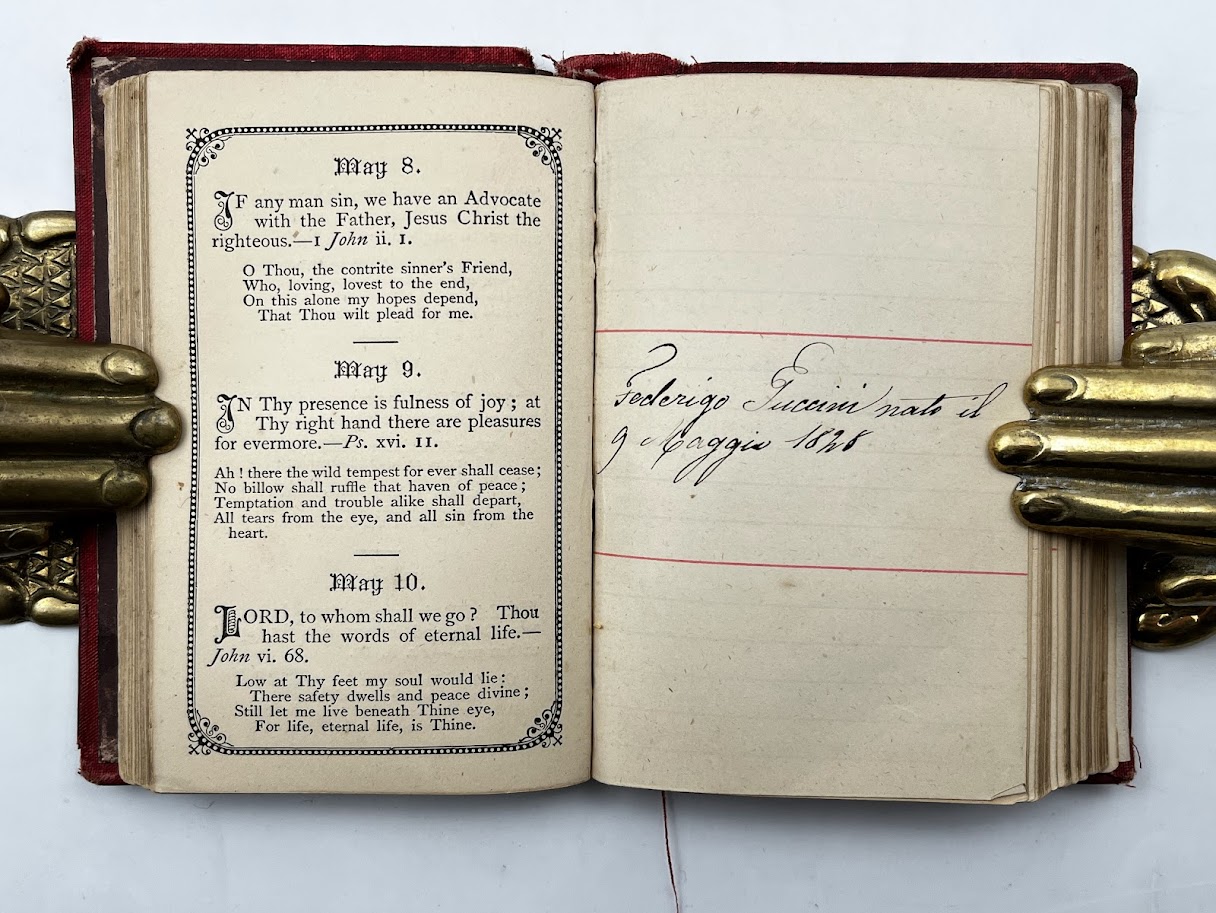 May 8.
IF any man sin, we have an Advocate
with the Father, Jesus Christ the
righteous.—1 John ii. 1.
O Thou, the contrite sinner's Friend,
Who, loving, lovest to the end,
On this alone my hopes depend,
That Thou wilt plead for me.
May 9.
IN Thy presence is fulness of joy; at
Thy right hand there are pleasures
for evermore.—Ps. xvi. 11.
Ah! there the wild tempest for ever shall cease;
No billow shall ruffle that haven of peace;
Temptation and trouble alike shall depart,
All tears from the eye, and all sin from the
heart.
May 10.
LORD, to whom shall we go? Thou
hast the words of eternal life.—
John vi. 68.
Low at Thy feet my soul would lie:
There safety dwells and peace divine;
Still let me live beneath Thine eye,
For life, eternal life, is Thine.
Federigo nato il
9 Maggio 1828